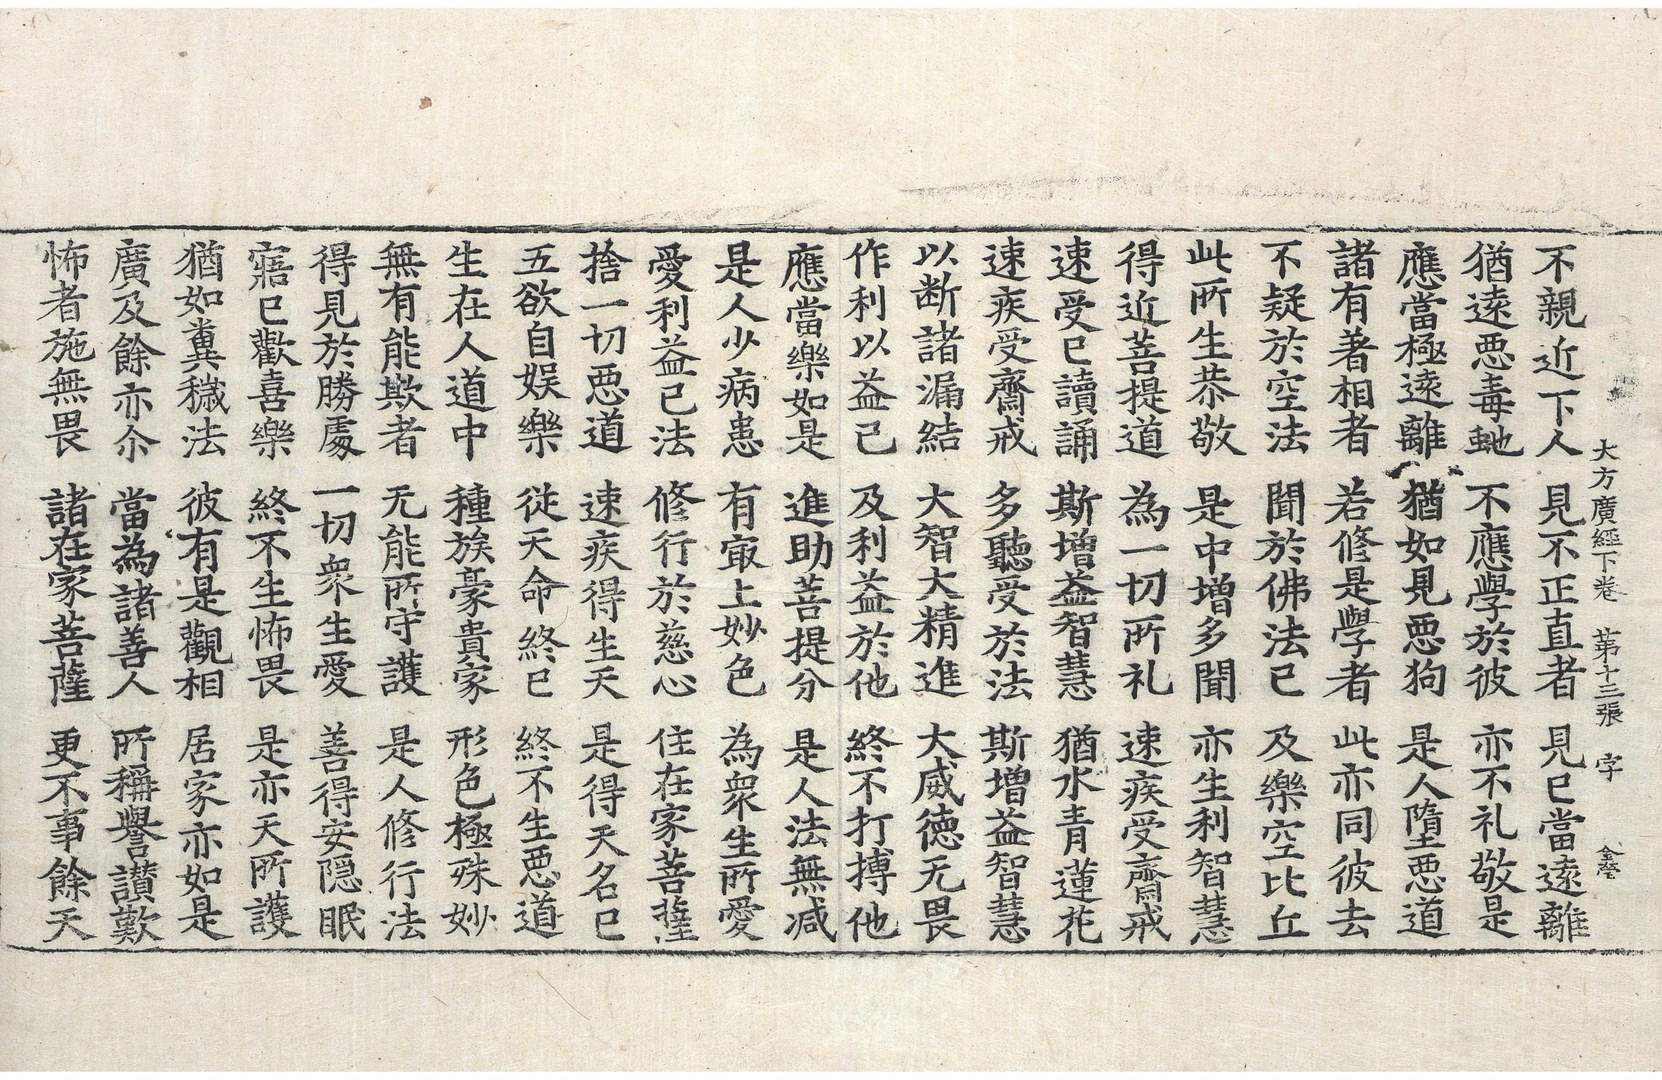 大方廣經下卷 第十三張 字
不親近下人 見不正直者 見已當遠離
猶遠惡毒虵 不應學於彼 亦不礼敬是
應當極遠離 猶如見惡狗 是人墮惡道
諸有著相者 若修是學者 此亦同彼去
不疑於空法 聞於佛法已 及樂空比丘
此所生恭敬 是中增多聞 亦生利智慧
得近菩提道 為一切所礼 速疾受齋戒
速受已讀誦 斯增益智慧 猶水青蓮花
速疾受齋戒 多聽受於法 斯增益智慧
以断諸漏結 大智大精進 大威德无畏
作利以益已 及利益於他 終不打搏他
應當樂如是 進助菩提分 是人法無減
是人少病患 有㝡上妙色 為衆生所愛
愛利益已法 修行於慈心 住在家菩薩
捨一切惡道 速疾得生天 是得天名已
五欲自娛樂 從天命終已 終不生惡道
生在人道中 種族豪貴家 形色極殊妙
無有能欺者 无能所守護 是人修行法
得見於勝處 一切衆生愛 善得安隱眠
寤已歡喜樂 終不生怖畏 是亦天所護
猶如糞穢法 彼有是觀相 居家亦如是
廣及餘亦尒 當為諸善人 所稱譽讃歎
怖者施無畏 諸在家菩薩 更不事餘天